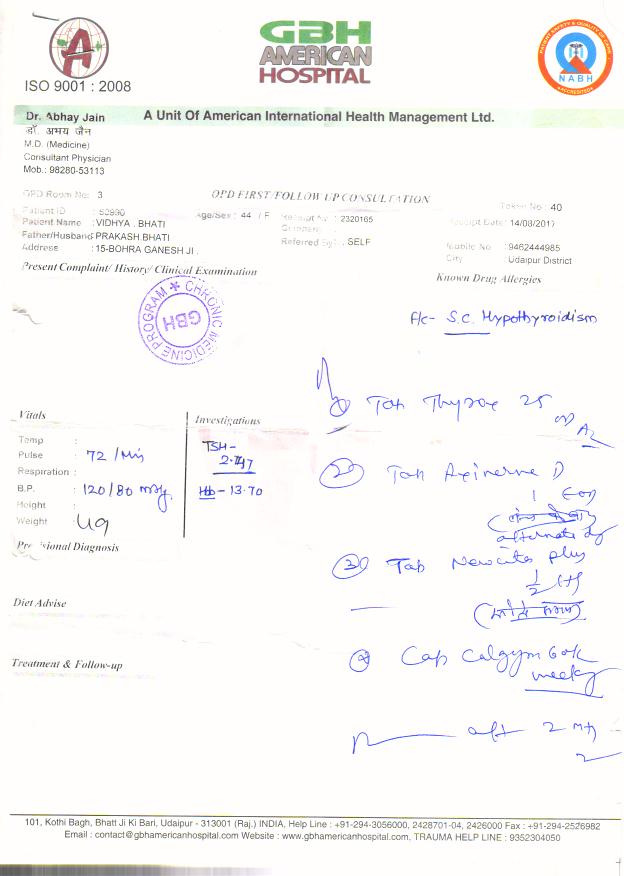 A
ISO 9001 : 2008
GBH
AMERICAN
HOSPITAL
PATIENT SAFETY & QUALITY OF CARE
NABH
ACCREDITED
Dr. Abhay Jain
डॉ. अभय जैन
M.D. (Medicine)
Consultant Physician
Mob.: 98280-53113
A Unit Of American International Health Management Ltd.
OPD Room No: 3
OPD FIRST/FOLLOW UP CONSULTATION
Token No : 40
Patient ID
Age/Sex : 44 / F
Receipt No : 2320165
Receipt Date : 14/08/2017
Patient Name : VIDHYA . BHATI
Father/Husband PRAKASH BHATI
Referred By : . SELF
Mobile No : 9462444985
Address : 15-BOHRA GANESH JI .
City : Udaipur District
Present Complaint/ History/ Clinical Examination
Known Drug Allergies
CHRONIC MEDICINE PROGRAM
GBH
S.C. Hypothyroidism
① Tab Thyrox 25
Vitals
Investigations
Temp :
TSH -
Pulse : 72 /Min
Respiration :
B.P. : 120/80 mmHg
Hb - 13.70
Height :
Weight : 49
② Tab D
1
alternate day
Provisional Diagnosis
③ Tab plus
1/2
Diet Advise
Treatment & Follow-up
④ Cap 60k
weekly
aft 2 mth
101, Kothi Bagh, Bhatt Ji Ki Bari, Udaipur - 313001 (Raj.) INDIA, Help Line : +91-294-3056000, 2428701-04, 2426000 Fax : +91-294-2526982
Email : contact@gbhamericanhospital.com Website : www.gbhamericanhospital.com, TRAUMA HELP LINE : 9352304050